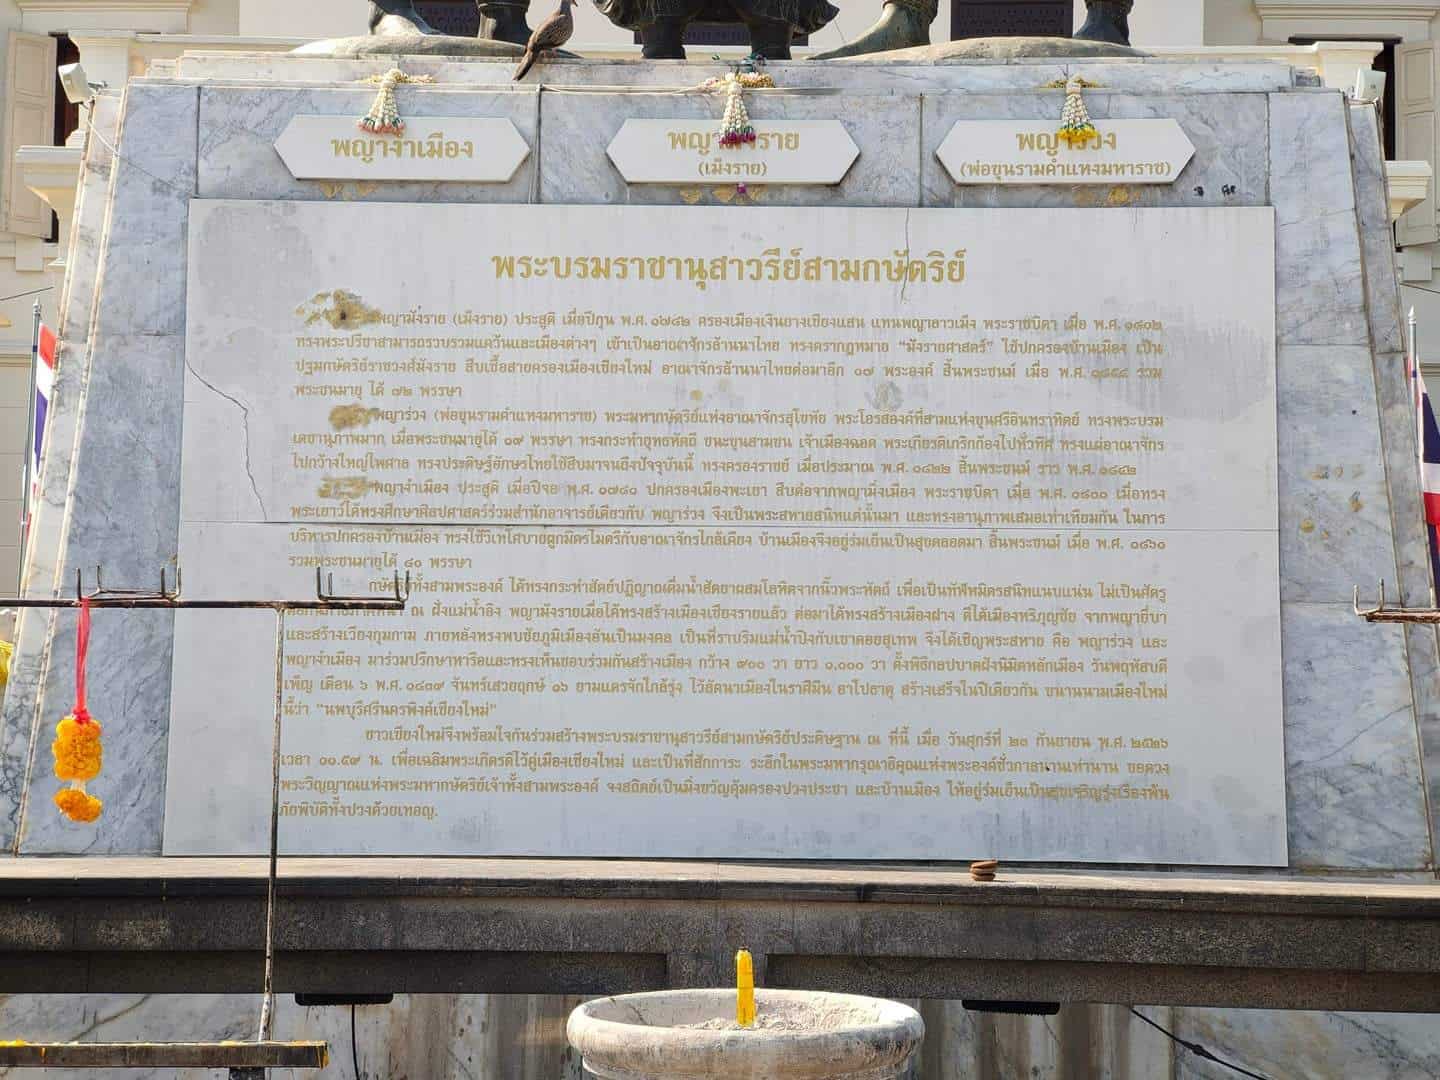 พญางำเมือง
พญามังราย
(เม็งราย)
พญาร่วง
(พ่อขุนรามคำแหงมหาราช)
พระบรมราชานุสาวรีย์สามกษัตริย์
พญามังราย (เม็งราย) ประสูติ เมื่อปีกุน พ.ศ. ๑๗๘๒ ครองเมืองเงินยางเชียงแสน แทนพญาลาวเม็ง พระราชบิดา เมื่อ พ.ศ. ๑๘๐๒
ทรงพระปรีชาสามารถรวบรวมแคว้นและเมืองต่างๆ เข้าเป็นอาณาจักรล้านนาไทย ทรงตรากฎหมาย "มังรายศาสตร์" ใช้ปกครองบ้านเมือง เป็น
ปฐมกษัตริย์ราชวงศ์มังราย สืบเชื้อสายครองเมืองเชียงใหม่ อาณาจักรล้านนาไทยต่อมาอีก ๑๗ พระองค์ สิ้นพระชนม์ เมื่อ พ.ศ. ๑๘๕๔ รวม
พระชนมายุ ได้ ๗๒ พรรษา
พญาร่วง (พ่อขุนรามคำแหงมหาราช) พระมหากษัตริย์แห่งอาณาจักรสุโขทัย พระโอรสองค์ที่สามแห่งขุนศรีอินทราทิตย์ ทรงพระบรม
เดชานุภาพมาก เมื่อพระชนมายุได้ ๑๙ พรรษา ทรงกระทำยุทธหัตถี ชนะขุนสามชน เจ้าเมืองฉอด พระเกียรติเกริกก้องไปทั่วทิศ ทรงแผ่อาณาจักร
ไปกว้างใหญ่ไพศาล ทรงประดิษฐ์อักษรไทยใช้สืบมาจนถึงปัจจุบันนี้ ทรงครองราชย์ เมื่อประมาณ พ.ศ. ๑๘๒๒ สิ้นพระชนม์ ราว พ.ศ. ๑๘๔๒
พญางำเมือง ประสูติ เมื่อปีจอ พ.ศ. ๑๗๘๑ ปกครองเมืองพะเยา สืบต่อจากพญามิ่งเมือง พระราชบิดา เมื่อ พ.ศ. ๑๘๐๐ เมื่อทรง
พระเยาว์ได้ทรงศึกษาศิลปศาสตร์ร่วมสำนักอาจารย์เดียวกับ พญาร่วง จึงเป็นพระสหายสนิทแต่นั้นมา และทรงอานุภาพเสมอเท่าเทียมกัน ในการ
บริหารปกครองบ้านเมือง ทรงใช้วิเทโศบายผูกมิตรไมตรีกับอาณาจักรใกล้เคียง บ้านเมืองจึงอยู่ร่มเย็นเป็นสุขตลอดมา สิ้นพระชนม์ เมื่อ พ.ศ. ๑๘๖๑
รวมพระชนมายุได้ ๘๐ พรรษา
กษัตริย์ทั้งสามพระองค์ ได้ทรงกระทำสัตย์ปฏิญาณดื่มน้ำสัตยาผสมโลหิตจากนิ้วพระหัตถ์ เพื่อเป็นทัฬหมิตรสนิทแนบแน่น ไม่เป็นศัตรู
ณ ฝั่งแม่น้ำอิง พญามังรายเมื่อได้ทรงสร้างเมืองเชียงรายแล้ว ต่อมาได้ทรงสร้างเมืองฝาง ตีได้เมืองหริภุญชัย จากพญายี่บา
และสร้างเวียงกุมกาม ภายหลังทรงพบชัยภูมิเมืองอันเป็นมงคล เป็นที่ราบริมแม่น้ำปิงกับเขาดอยสุเทพ จึงได้เชิญพระสหาย คือ พญาร่วง และ
พญางำเมือง มาร่วมปรึกษาหารือและทรงเห็นชอบร่วมกันสร้างเมือง กว้าง ๙๐๐ วา ยาว ๑,๐๐๐ วา ตั้งพิธีกอปบาตฝังนิมิตหลักเมือง วันพฤหัสบดี
เพ็ญ เดือน ๖ พ.ศ. ๑๘๓๙ จันทร์เสวยฤกษ์ ๑๖ ยามแตรจักใกล้รุ่ง ไว้ลัคนาเมืองในราศีมีน อาโปธาตุ สร้างเสร็จในปีเดียวกัน ขนานนามเมืองใหม่
นี้ว่า "นพบุรีศรีนครพิงค์เชียงใหม่"
ชาวเชียงใหม่จึงพร้อมใจกันร่วมสร้างพระบรมราชานุสาวรีย์สามกษัตริย์ประดิษฐาน ณ ที่นี้ เมื่อ วันศุกร์ที่ ๒๓ กันยายน พ.ศ. ๒๕๒๖
เวลา ๑๑.๕๙ น. เพื่อเฉลิมพระเกียรติไว้คู่เมืองเชียงใหม่ และเป็นที่สักการะ ระลึกในพระมหากรุณาธิคุณแห่งพระองค์ชั่วกาลนานเท่านาน ขอดวง
พระวิญญาณแห่งพระมหากษัตริย์เจ้าทั้งสามพระองค์ จงสถิตย์เป็นมิ่งขวัญคุ้มครองปวงประชา และบ้านเมือง ให้อยู่ร่มเย็นเป็นสุขเจริญรุ่งเรืองพ้น
ภัยพิบัติทั้งปวงด้วยเทอญ.